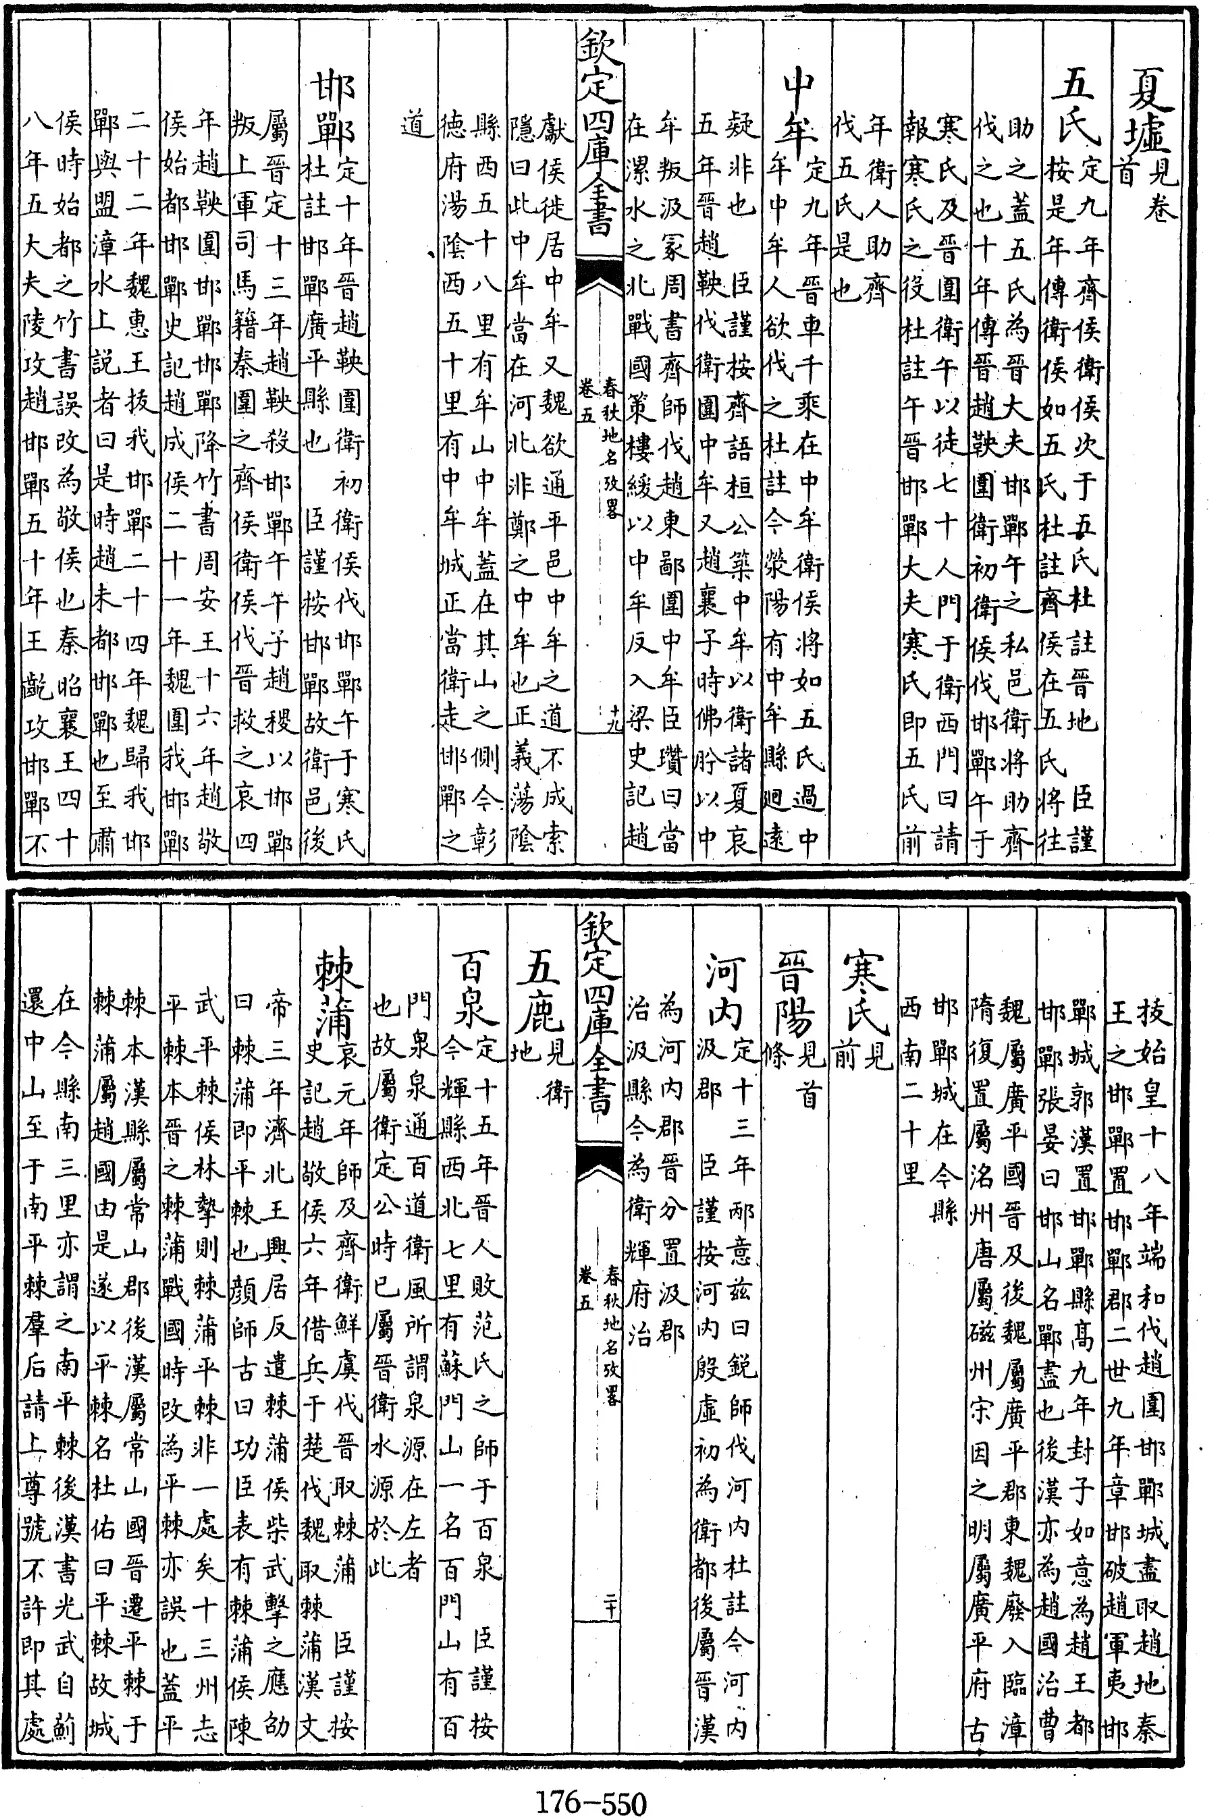 夏墟見卷
首
五氏定九年齊侯衛侯次于五氏杜註晉地　臣謹
按是年傳衛侯如五氏杜註齊侯在五氏將往
助之蓋五氏為晉大夫邯鄲午之私邑衛將助齊
伐之也十年傳晉趙鞅圍衛初衛侯伐邯鄲午于
寒氏及晉圍衛午以徒七十人門于衛西門曰請
報寒氏之役杜註午晉邯鄲大夫寒氏即五氏前
年衛人助齊
伐五氏是也
中牟定九年晉車千乘在中牟衛侯將如五氏過中
牟中牟人欲伐之杜註今滎陽有中牟縣廻遠
疑非也　臣謹按齊語桓公築中牟以衛諸夏哀
五年晉趙鞅伐衛圍中牟又趙襄子時佛肸以中
牟叛汲冢周書齊師伐趙東鄙圍中牟臣瓚曰當
在漯水之北戰國策樓緩以中牟反入梁史記趙
欽定四庫全書
春秋地名攷畧
卷五
十九
獻侯徙居中牟又魏欲通平邑中牟之道不成索
隱曰此中牟當在河北非鄭之中牟也正義蕩陰
縣西五十八里有牟山中牟蓋在其山之側今彰
德府湯陰西五十里有中牟城正當衛走邯鄲之
道
邯鄲定十年晉趙鞅圍衛初衛侯伐邯鄲午于寒氏
杜註邯鄲廣平縣也　臣謹按邯鄲故衛邑後
屬晉定十三年趙鞅殺邯鄲午午子趙稷以邯鄲
叛上軍司馬籍秦圍之齊侯衛侯伐晉救之哀四
年趙鞅圍邯鄲邯鄲降竹書周安王十六年趙敬
侯始都邯鄲史記趙成侯二十一年魏圍我邯鄲
二十二年魏惠王拔我邯鄲二十四年魏歸我邯
鄲與盟漳水上說者曰是時趙未都邯鄲也至肅
侯時始都之竹書誤改為敬侯也秦昭襄王四十
八年五大夫陵攻趙邯鄲五十年王齕攻邯鄲不
拔始皇十八年端和伐趙圍邯鄲城盡取趙地秦
王之邯鄲置邯鄲郡二世九年章邯破趙軍夷邯
鄲城郭漢置邯鄲縣高九年封子如意為趙王都
邯鄲張晏曰邯山名鄲盡也後漢亦為趙國治曹
魏屬廣平國晉及後魏屬廣平郡東魏廢入臨漳
隋復置屬洺州唐屬磁州宋因之明屬廣平府古
邯鄲城在今縣
西南二十里
寒氏見
前
晉陽見首
條
河内定十三年邴意茲曰銳師伐河内杜註今河内
汲郡　臣謹按河内殷虛初為衛都後屬晉漢
為河内郡晉分置汲郡
治汲縣今為衛輝府治
欽定四庫全書
春秋地名攷畧
卷五
二十
五鹿見衛
地
百泉定十五年晉人敗范氏之師于百泉　臣謹按
今輝縣西北七里有蘇門山一名百門山有百
門泉泉通百道衛風所謂泉源在左者
也故屬衛定公時已屬晉衛水源於此
棘蒲哀元年師及齊衛鮮虞伐晉取棘蒲　臣謹按
史記趙敬侯六年借兵于楚伐魏取棘蒲漢文
帝三年濟北王興居反遣棘蒲侯柴武擊之應劭
曰棘蒲即平棘也顏師古曰功臣表有棘蒲侯陳
武平棘侯林摯則棘蒲平棘非一處矣十三州志
平棘本晉之棘蒲戰國時改為平棘亦誤也蓋平
棘本漢縣屬常山郡後漢屬常山國晉遷平棘于
棘蒲屬趙國由是遂以平棘名杜佑曰平棘故城
在今縣南三里亦謂之南平棘後漢書光武自薊
還中山至于南平棘羣后請上尊號不許即其處
176-550